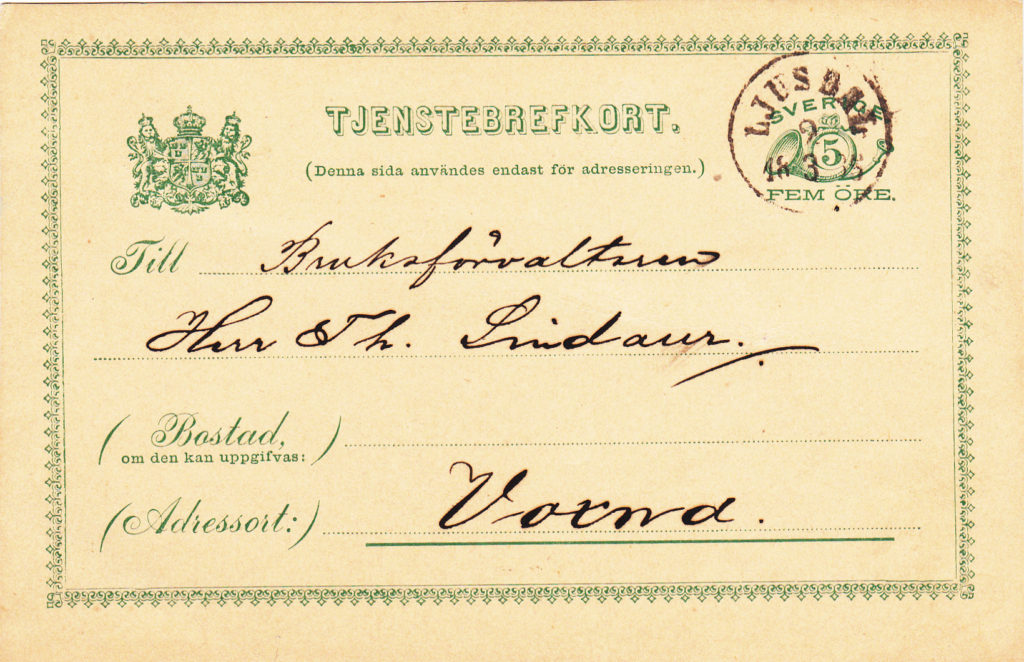 TJENSTEBREFKORT.
(Denna sida användes endast för adresseringen.)
SVERIGE
5
FEM ÖRE.
LJUSDAL
9
18 3
Till Bruksförvaltaren
Herr Th. Lindauer.
(Bostad,
om den kan uppgifvas:)
(Adressort:) Voxna.